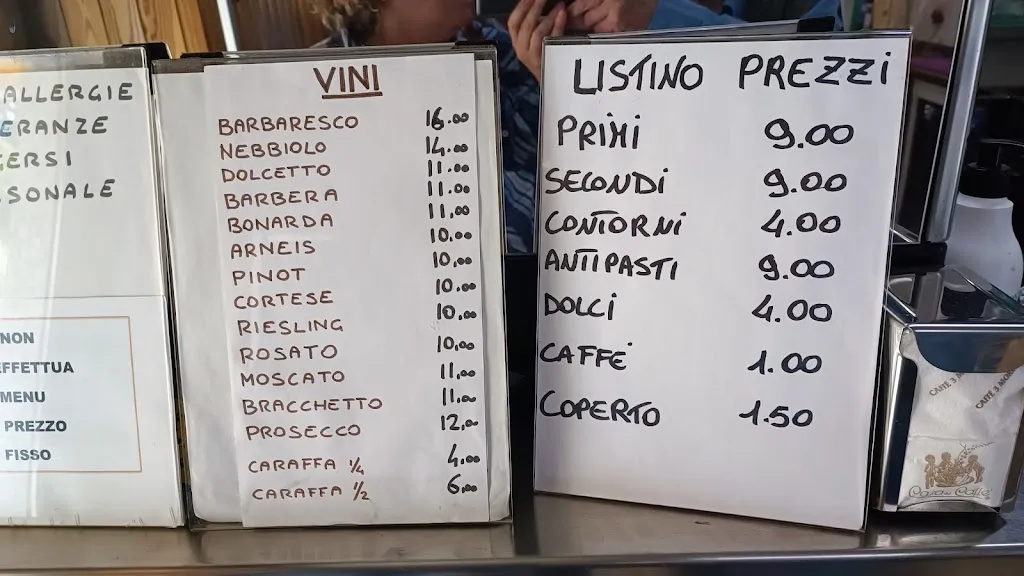 ALLERGIE
ERANZE
GERSI
SONALE
NON
EFFETTUA
MENU
PREZZO
FISSO
VINI
BARBARESCO 16.00
NEBBIOLO 14.00
DOLCETTO 11.00
BARBERA 11.00
BONARDA 11,00
ARNEIS 10.00
PINOT 10,00
CORTESE 10.00
RIESLING 10,00
ROSATO 10,00
MOSCATO 11,00
BRACCHETTO 11,00
PROSECCO 12,00
CARAFFA 1/4 4,00
CARAFFA 1/2 6,00
LISTINO PREZZi
PRIMI 9.00
SECONDi 9.00
CONTORNi 4.00
ANTIPASTi 9.00
DOLCi 4.00
CAFFE' 1.00
COPERTO 1.50